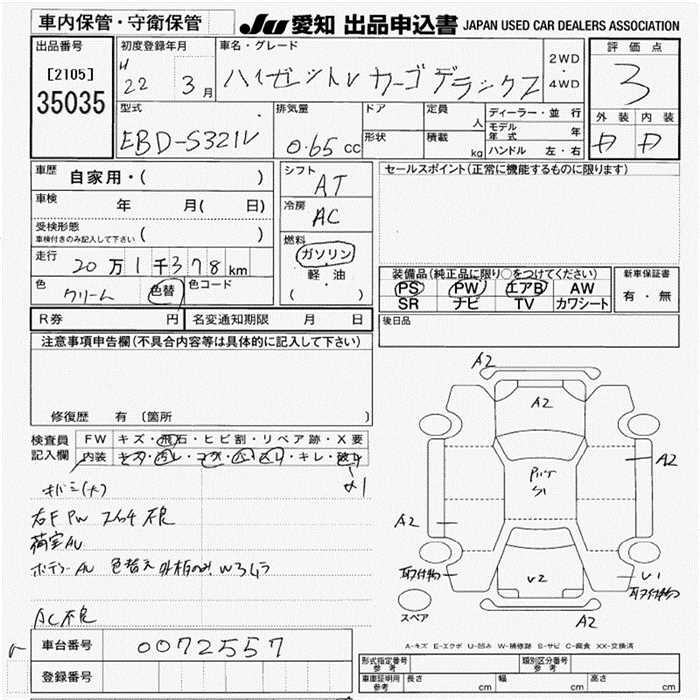 車内保管・守衛保管
JU 愛知 出品申込書 JAPAN USED CAR DEALERS ASSOCIATION
出品番号
[2105]
35035
初度登録年月
H 22 3月
車名・グレード
ハイゼットV カーゴ デラックス
2WD・4WD
評価点
3
型式
EBD-S321V
排気量
0.65 cc
ドア
定員 人
形状
積載 kg
ディーラー・並行
モデル年式 年
ハンドル 左・右
外装 内装
D D
車歴 自家用・( )
車検 年 月( 日)
受検形態
車検付きのみ記入して下さい ( )
走行 20万1千378km
色 クリーム 色替 色コード
シフト AT
冷房 AC
燃料
ガソリン
・
軽・油
( )
セールスポイント(正常に機能するものに限ります)
装備品(純正品に限り○をつけてください)
PS PW エアB AW
SR ナビ TV カワシート
新車保証書
有・無
R券 円 名変通知期限 月 日
後日品
注意事項申告欄(不具合内容等は具体的に記入して下さい)
修復歴 有 〔箇所 〕
検査員記入欄
FW キズ・飛石・ヒビ割・リペア跡・X要
内装 キズ・汚レ・コゲ・穴・スリ・キレ・破れ
右F PW スイッチ不良
荷室AU
ボデーAU 色替え外板のみ W3ムラ
AC不良
A2
A2
A2
A2
A2
S1
V2
取付物
U1
取付物
スペア
A-キズ E-エクボ U-凹み W-補修跡 S-サビ C-腐食 XX-交換済
車台番号 0072557
登録番号
形式指定番号 参考
類別区分番号 参考
車庫証明用 参考
長さ cm
幅 cm
高さ cm